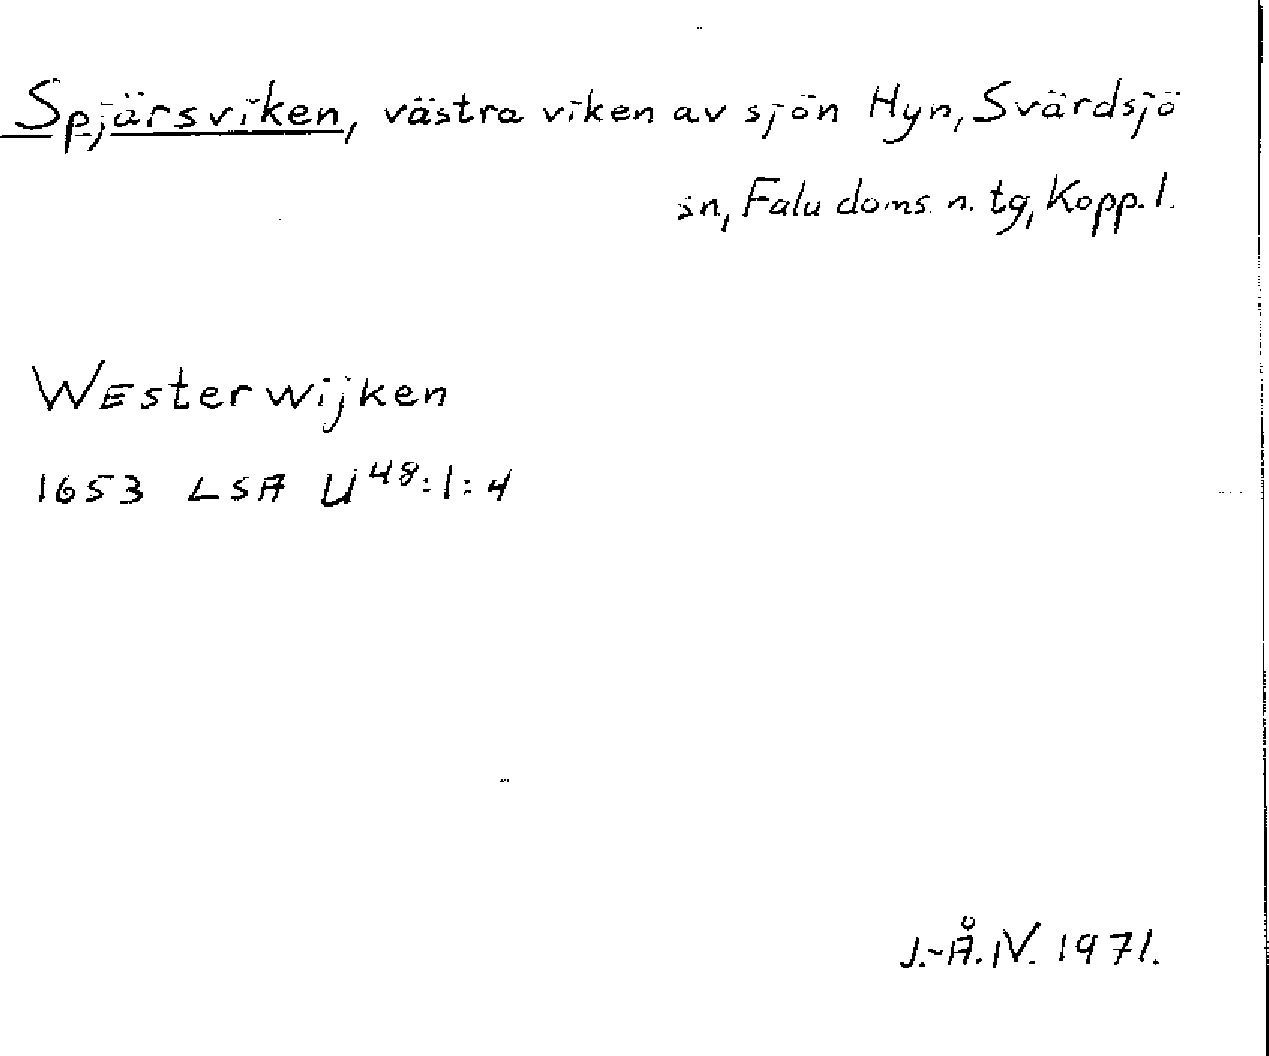 Spjärsviken, västra viken av sjön Hyn, Svärdsjö
sn, Falu doms. n. tg, Kopp. l.
Westerwijken
1653 LSA U48:1:4
J.-Å. W. 1971.